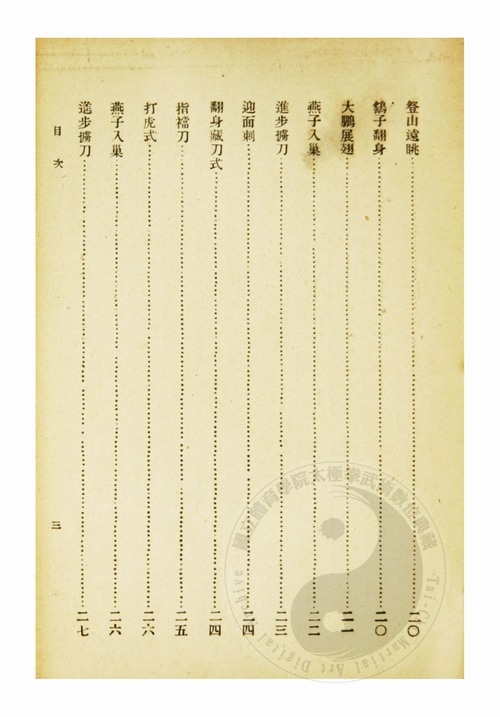 登山遠眺……二〇
鷂子翻身……二〇
大鵬展翅……二一
燕子入巢……二二
進步撩刀……二三
迎面刺……二四
翻身藏刀式……二四
指襠刀……二五
打虎式……二六
燕子入巢……二六
進步撩刀……二七
目次
三
國立體育學院太極拳武術數位典藏
Tai-Chi Martial Art Digital Archive